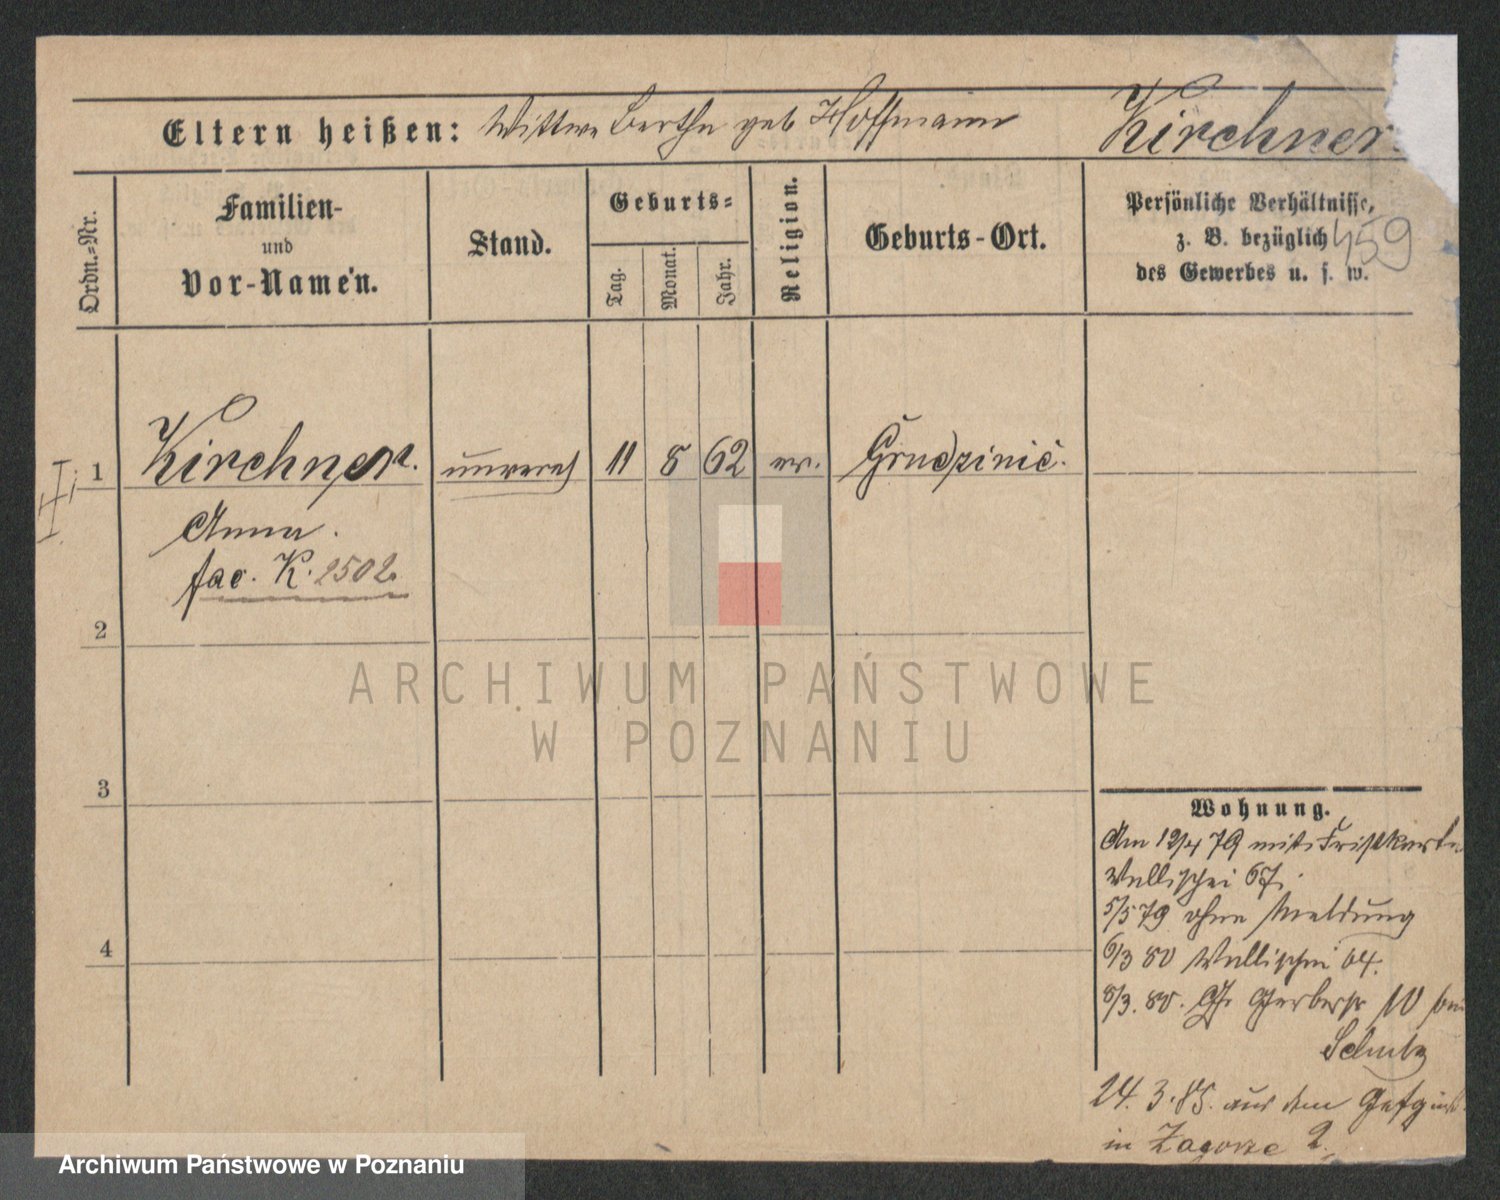 Eltern heißen: Wittwe Bertha geb Hoffmann Kirchner.
Ordn.-Nr.
Familien-
und
Vor-Namen.
Stand.
Geburts-
Tag.
Monat.
Jahr.
Religion.
Geburts-Ort.
Persönliche Verhältnisse,
z. B. bezüglich
des Gewerbes u. s. w.
459
1 Kirchner. unvereh 11 8 62 ev. Grudzinić.
Anna.
fac. K. 2502.
2
3
4
Wohnung.
Am 12/4 79 mit Fristkarte
Wallischei 67.
5/5 79 ohne Meldung
6/3 80 Wallischei 64.
8/3. 80. Gr Gerberstr 10 bei
Schulz
24. 3. 85. aus dem
in Zagorze 2.
ARCHIWUM PAŃSTWOWE
W POZNANIU
Archiwum Państwowe w Poznaniu